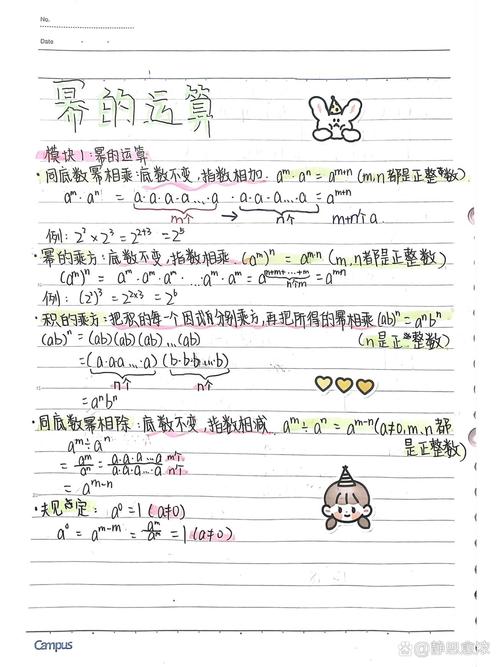 No.
Date
幂的运算
模块1:幂的运算
·同底数幂相乘:底数不变,指数相加. aᵐ·aⁿ=aᵐ⁺ⁿ(m,n都是正整数)
aᵐ·aⁿ = a·a·a·a…·a · a·a·a…·a =aᵐ⁺ⁿ
m个 → n个 m+n个a
例: 2²×2³=2²⁺³=2⁵
·幂的乘方:底数不变,指数相乘.(aᵐ)ⁿ=aᵐⁿ(m,n都是正整数)
(aᵐ)ⁿ = aᵐ·aᵐ·aᵐ· …aᵐ·aᵐ=a^(m+m+…+m)=aᵐⁿ
n个m
例: (2²)³=2²ˣ³=2⁶
·积的乘方:把积的每个因式分别乘方,再把所得的幂相乘(ab)ⁿ=aⁿbⁿ
(ab)ⁿ=(ab)(ab)(ab)…(ab) (n是正整数)
=(a·a·a…·a)(b·b·b…·b)
n个 n个
=aⁿbⁿ
·同底数幂相除:底数不变,指数相减 aᵐ÷aⁿ=aᵐ⁻ⁿ(a≠0,m、n都
是正整数)
aᵐ÷aⁿ
=aᵐ/aⁿ=a·a·a…·a/a·a·a…·a m个/n个
=aᵐ⁻ⁿ
·规定: a⁰=1(a≠0)
a⁰=aᵐ⁻ᵐ=aᵐ/aᵐ=1(a≠0)
Campus